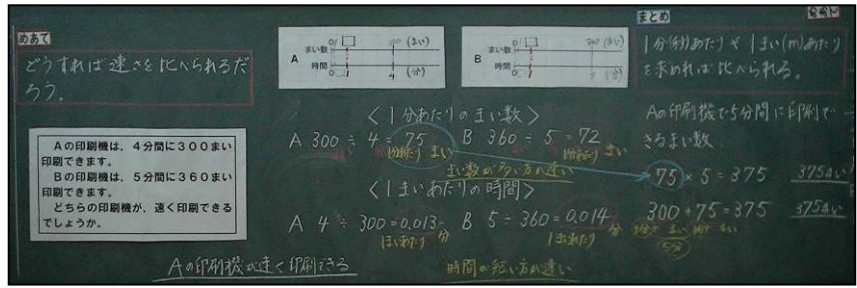 めあて
どうすれば速さを比べられるだ
ろう。
Aの印刷機は、4分間に300まい
印刷できます。
Bの印刷機は、5分間に360まい
印刷できます。
どちらの印刷機が、速く印刷できる
でしょうか。
A
0 300 (まい)
まい数
時間
0 4 (分)
B
0 360 (まい)
まい数
時間
0 5 (分)
<1分あたりのまい数>
A 300÷4=75 B 360÷5=72
1分あたり まい 1分あたり まい
まい数が多い方が速い
<1まいあたりの時間>
A 4÷300=0.013 B 5÷360=0.014
1まいあたり 分 1まいあたり 分
Aの印刷機が速く印刷できる
時間が短い方が速い
まとめ
1分(秒)あたりや1まい(m)あたり
を求めれば比べられる。
Aの印刷機で5分間に印刷で
きるまい数
75×5=375 375まい
300+75=375 375まい
5分